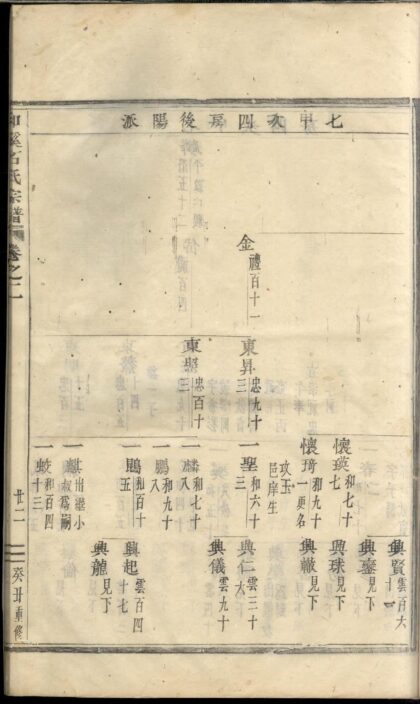 七甲次四房後陽派
金
禮百十一
東昇三
忠九十
東
三
忠百十
懷瑛七
和七十
懷琦一
和九十
更名
攻玉
邑庠生
一聖三
和六十
一麟八
和七十
一鵬八
和九十
一鵾五
和百十
一麒
出繼小
叔爲嗣
一蛟十三
和百四
興賢十一
雲百六
興鑾
見下
興球
見下
興轍
見下
興仁六
雲三十
興儀
雲九十
興起十七
雲百四
興龍
見下
和溪石氏宗譜
卷之二
廿二
癸丑重修